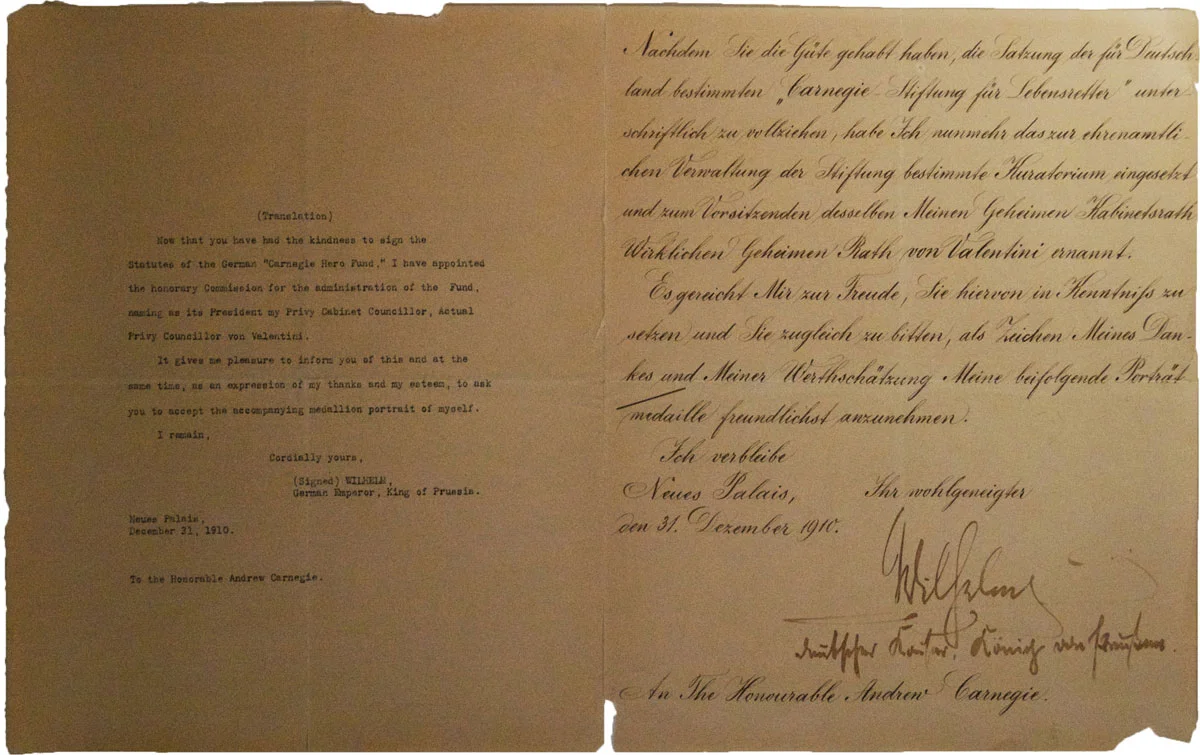 (Translation)
Now that you have had the kindness to sign the
Statutes of the German "Carnegie Hero Fund," I have appointed
the honorary Commission for the administration of the Fund,
naming as its President my Privy Cabinet Councillor, Actual
Privy Councillor von Valentini.
It gives me pleasure to inform you of this and at the
same time, as an expression of my thanks and my esteem, to ask
you to accept the accompanying medallion portrait of myself.
I remain,
Cordially yours,
(Signed) WILHELM,
German Emperor, King of Prussia.
Neues Palais,
December 31, 1910.
To the Honorable Andrew Carnegie.
Nachdem Sie die Güte gehabt haben, die Satzung der für Deutsch
land bestimmten „Carnegie-Stiftung für Lebensretter" unter
schriftlich zu vollziehen, habe Ich nunmehr das zur ehrenamtli-
chen Verwaltung der Stiftung bestimmte Kuratorium eingesetzt
und zum Vorsitzenden desselben Meinen Geheimen Kabinetsrath
Wirklichen Geheimen Rath von Valentini ernannt.
Es gereicht Mir zur Freude, Sie hiervon in Kenntniß zu
setzen und Sie zugleich zu bitten, als Zeichen Meines Dan-
kes und Meiner Werthschätzung Meine beifolgende Porträt
medaille freundlichst anzunehmen.
Ich verbleibe
Neues Palais, Ihr wohlgeneigter
den 31. Dezember 1910.
Wilhelm
deutscher Kaiser, König von Preußen.
An The Honourable Andrew Carnegie.